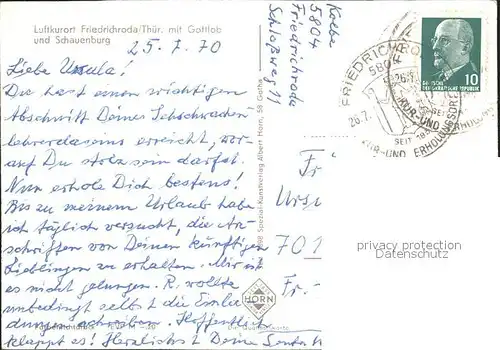 Luftkurort Friedrichroda/Thür. mit Gottlob
und Schauenburg
25. 7. 70
Kolbe
5804
Friedrichroda
Schloßweg 11
Liebe Ursula!
Du hast einen wichtigen
Abschnitt Deines
lehrerdaseins erreicht, wor-
auf Du stolz sein darfst.
Nun erhole Dich bestens!
Bis zu meinem Urlaub habe
ich täglich versucht, die An-
schriften von Deinen künftigen
Lieblingen zu erhalten. Mir ist
es nicht gelungen. R. wollte
unbedingt selbst die Einla
dungen schreiben. Hoffentlich
klappt es! Herzlichst Deine
Spezial-Kunstverlag Albert Horn, 58 Gotha
HORN
Fr
Ursu
701
Fr.-
FRIEDRICHRODA
5804
26.7.
KUR-UND ERHOLUNGSORT
SEIT
DEUTSCHE
DEMOKRATISCHE REPUBLIK
10
privacy protection
Datenschutz